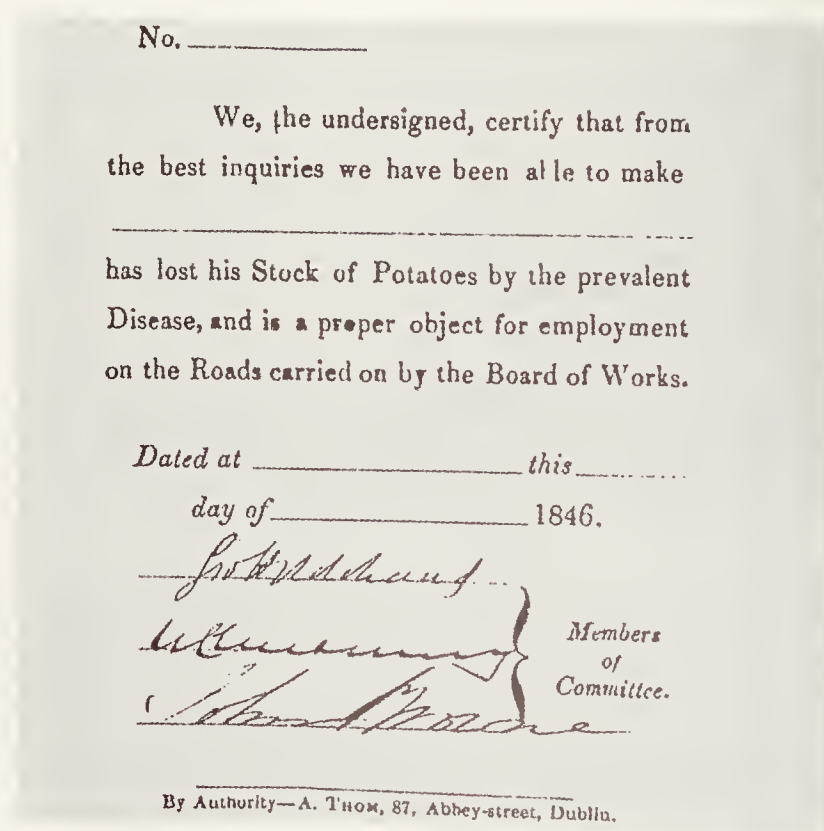 No.
We, the undersigned, certify that from
the best inquiries we have been able to make
has lost his Stock of Potatoes by the prevalent
Disease, and is a proper object for employment
on the Roads carried on by the Board of Works.
Dated at this
day of 1846.
Members
of
Committee.
John
By Authority—A. THOM, 87, Abbey-street, Dublin.